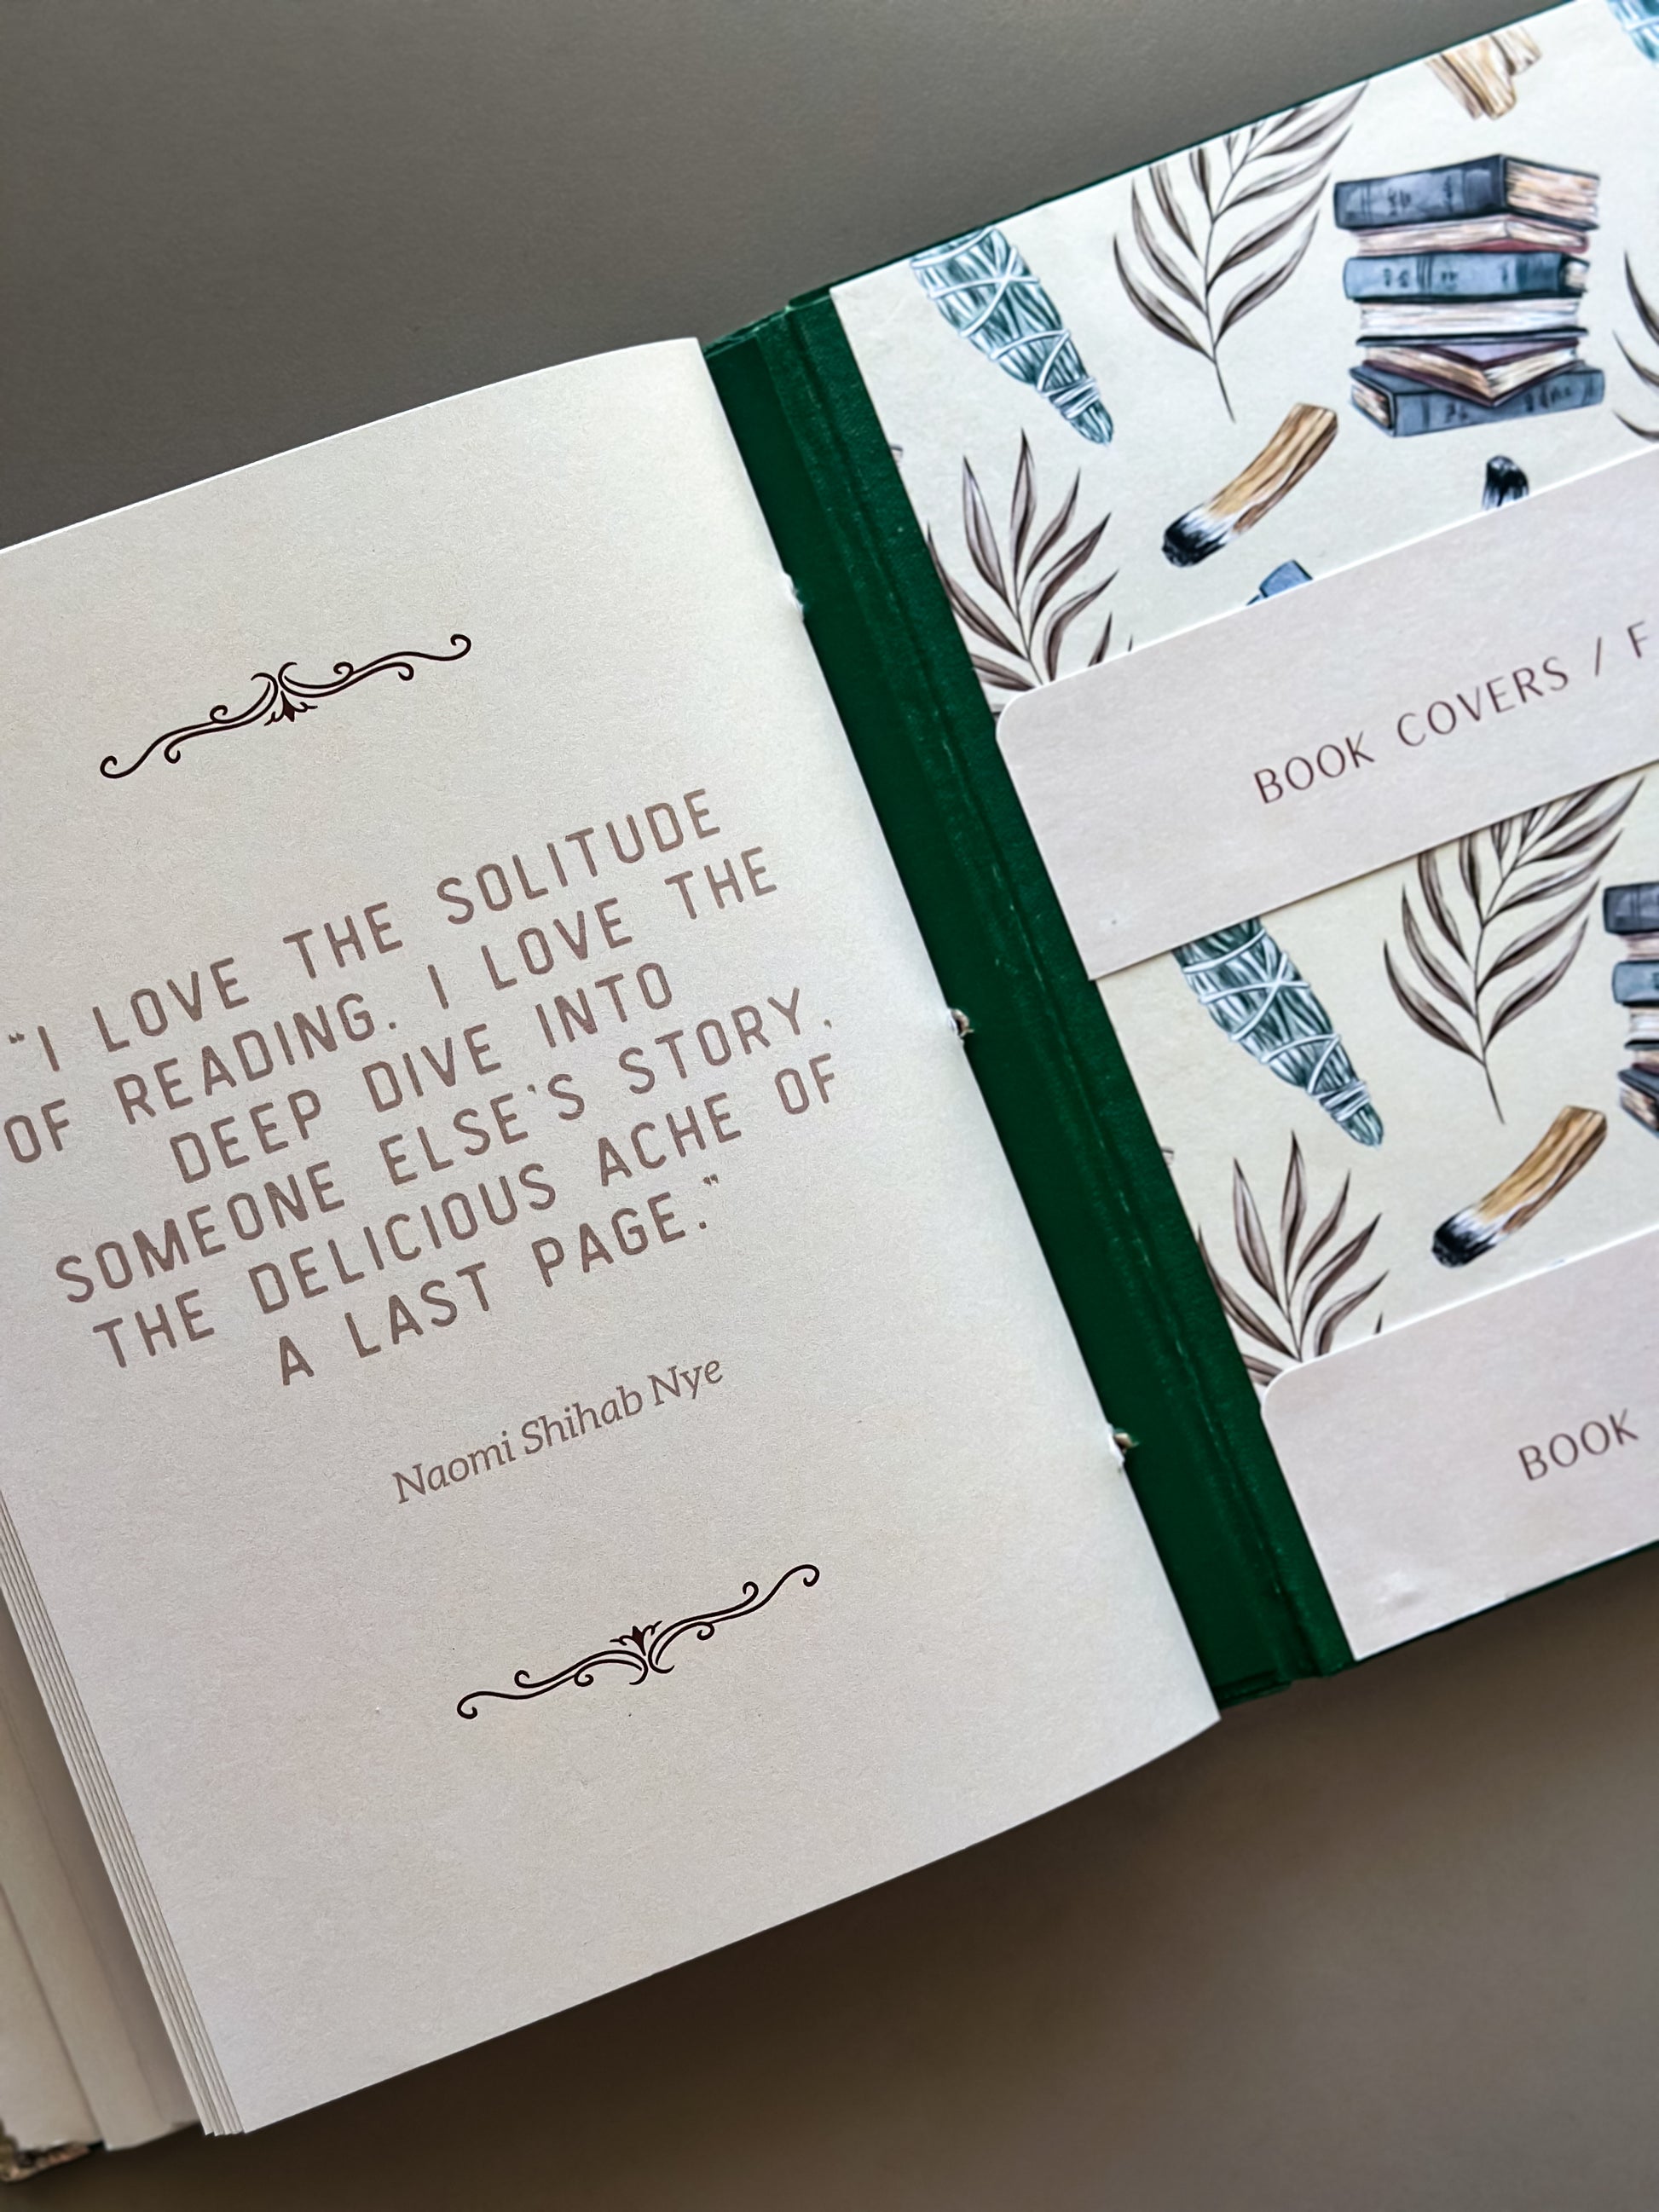 “I LOVE THE SOLITUDE
OF READING. I LOVE THE
DEEP DIVE INTO
SOMEONE ELSE'S STORY,
THE DELICIOUS ACHE OF
A LAST PAGE.”
Naomi Shihab Nye
BOOK COVERS / F
BOOK